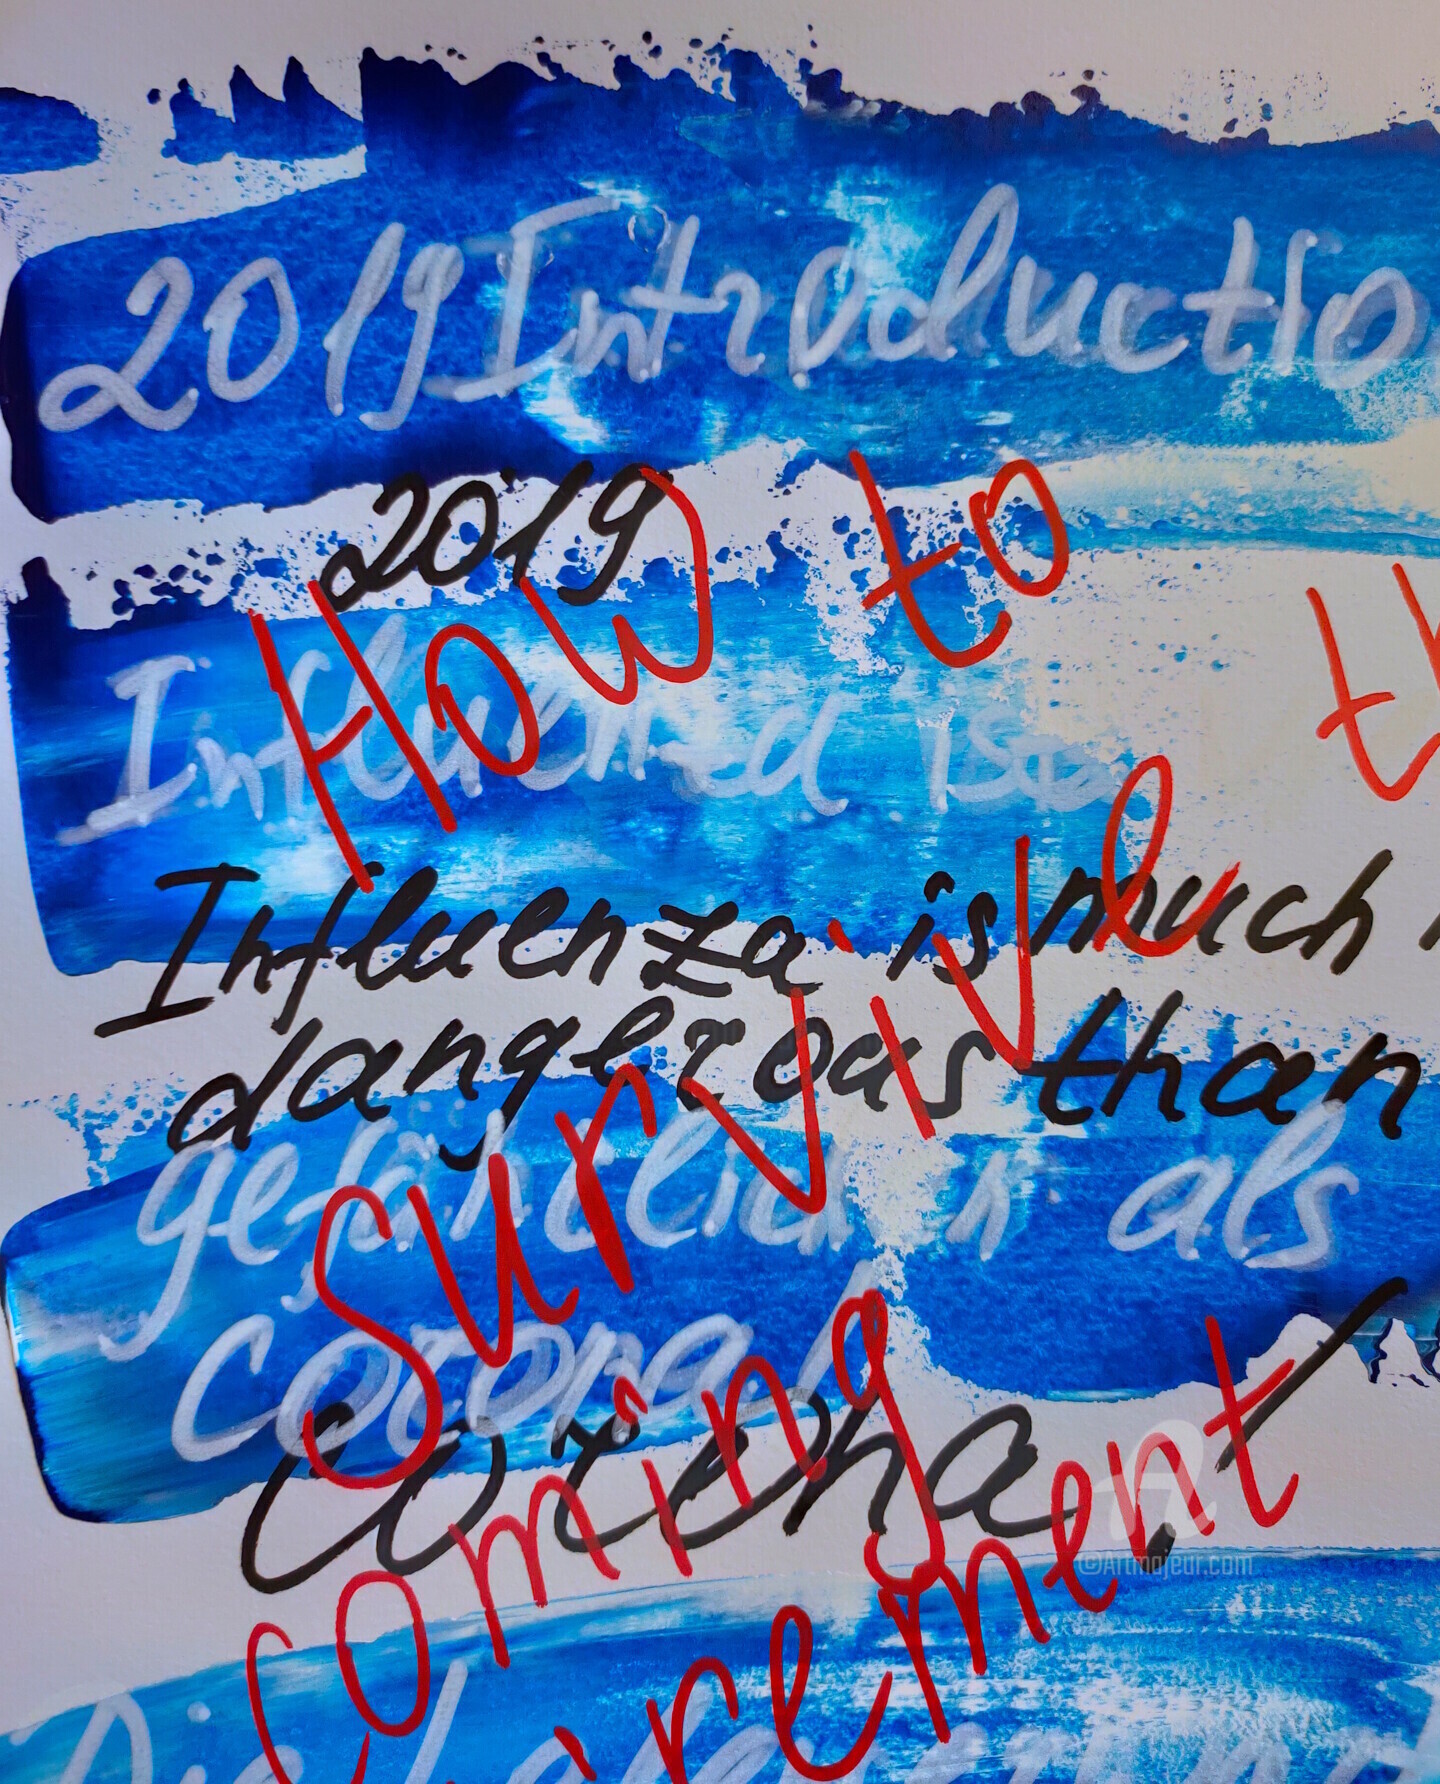 2019 Introductio
2019
How to
th
Influenza is
survive
Influenza is much
dangerous than
gefährlich als
corona
Corona
coming
rement
©Artmajeur.com